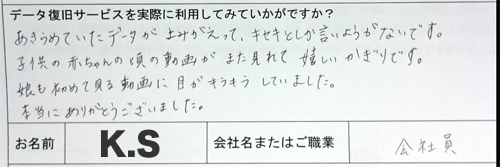 データ復旧サービスを実際に利用してみていかがですか？
あきらめていたデータが よみがえって、キセキとしか言いようがないです。
子供の赤ちゃんの頃の動画が また見れて 嬉しいかぎりです。
娘も初めて見る動画に 目がキラキラ していました。
本当に ありがとうございました。
お名前 K.S 会社名またはご職業 会社員